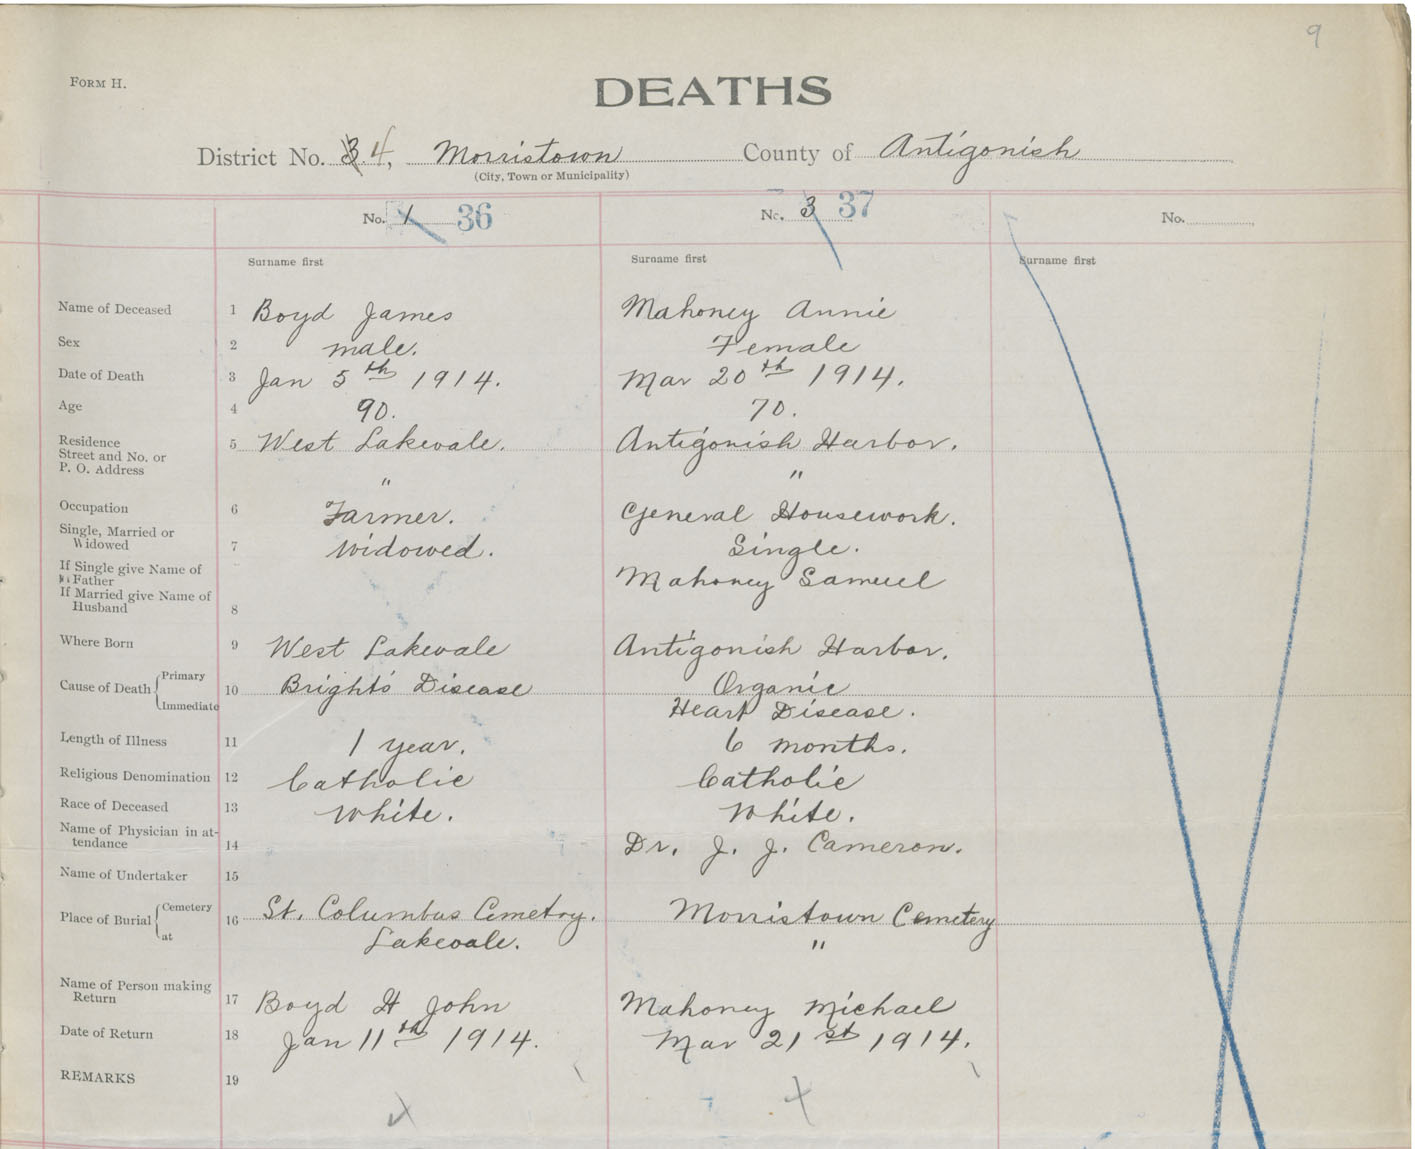 9
FORM H.
DEATHS
District No. 3 4, Morristown County of Antigonish
(City, Town or Municipality)
No. 1 36 No. 3 37 No.
Surname first Surname first Surname first
Name of Deceased 1 Boyd James Mahoney Annie
Sex 2 male. Female
Date of Death 3 Jan 5th 1914. Mar 20th 1914.
Age 4 90. 70.
Residence 5 West Lakevale. Antigonish Harbor.
Street and No. or
P. O. Address " "
Occupation 6 Farmer. General Housework.
Single, Married or
Widowed 7 Widowed. Single.
If Single give Name of
Father Mahoney Samuel
If Married give Name of
Husband 8
Where Born 9 West Lakevale Antigonish Harbor.
Cause of Death { Primary 10 Bright's Disease Organic
Immediate Heart Disease.
Length of Illness 11 1 year. 6 months.
Religious Denomination 12 Catholic Catholic
Race of Deceased 13 White. White.
Name of Physician in at-
tendance 14 Dr. J. J. Cameron.
Name of Undertaker 15
Place of Burial { Cemetery 16 St. Columbus Cemetry. Morristown Cemetery
at Lakevale. "
Name of Person making
Return 17 Boyd H John Mahoney Michael
Date of Return 18 Jan 11th 1914. Mar 21st 1914.
REMARKS 19